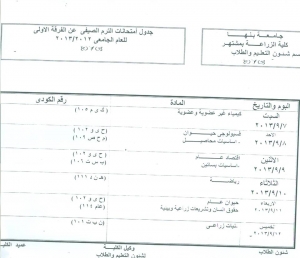 جامعة بنها
كلية الزراعة بمشتهر
قسم شئون التعليم والطلاب
جدول امتحانات الترم الصيفى عن الفرقة الاولى
للعام الجامعى ٢٠١٣/٢٠١٢
اليوم والتاريخ
المادة
رقم الكودى
السبت
٢٠١٣/٩/٧
كيمياء غير عضوية وعضوية
(ك ى م ١٠٥)
الاحد
٢٠١٣/٩/٨
فسيولوجى حيوان
اساسيات محاصيل
الاثنين
٢٠١٣/٩/٩
اقتصاد عام
اساسيات بساتين
الثلاثاء
٢٠١٣/٩/١٠
رياضة
الاربعاء
٢٠١٣/٩/١١
حيوان عام
حقوق انسان وتشريعات زراعية وبيئية
الخميس
٢٠١٣/٩/١٢
نبات زراعى
(ن ب ت ١٠١)
وكيل الكلية
لشئون التعليم والطلاب
عميد الكلية